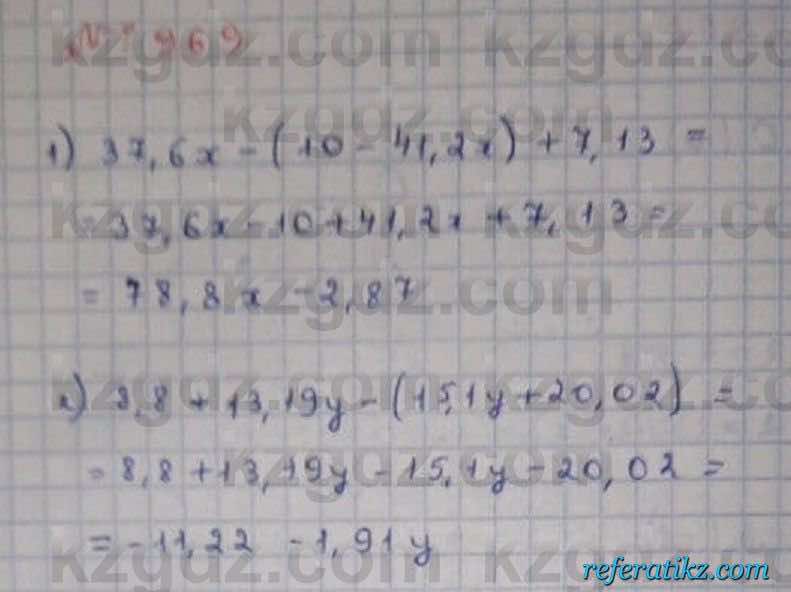 № 969
1) 37,6x - (10 - 41,2x) + 7,13 =
= 37,6x - 10 + 41,2x + 7,13 =
= 78,8x - 2,87
2) 8,8 + 13,19y - (15,1y + 20,02) =
= 8,8 + 13,19y - 15,1y - 20,02 =
= -11,22 - 1,91y
referatikz.com